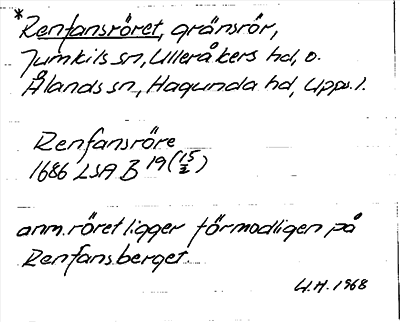 *Renfansröret, gränsrör,
Jumkils sn, Ulleråkers hd, o.
Ålands sn, Hagunda hd, Upps. l.
Renfansröre
1686 LSA B 19 (15/2)
anm. röret ligger förmodligen på
Renfansberget.
U.H. 1968